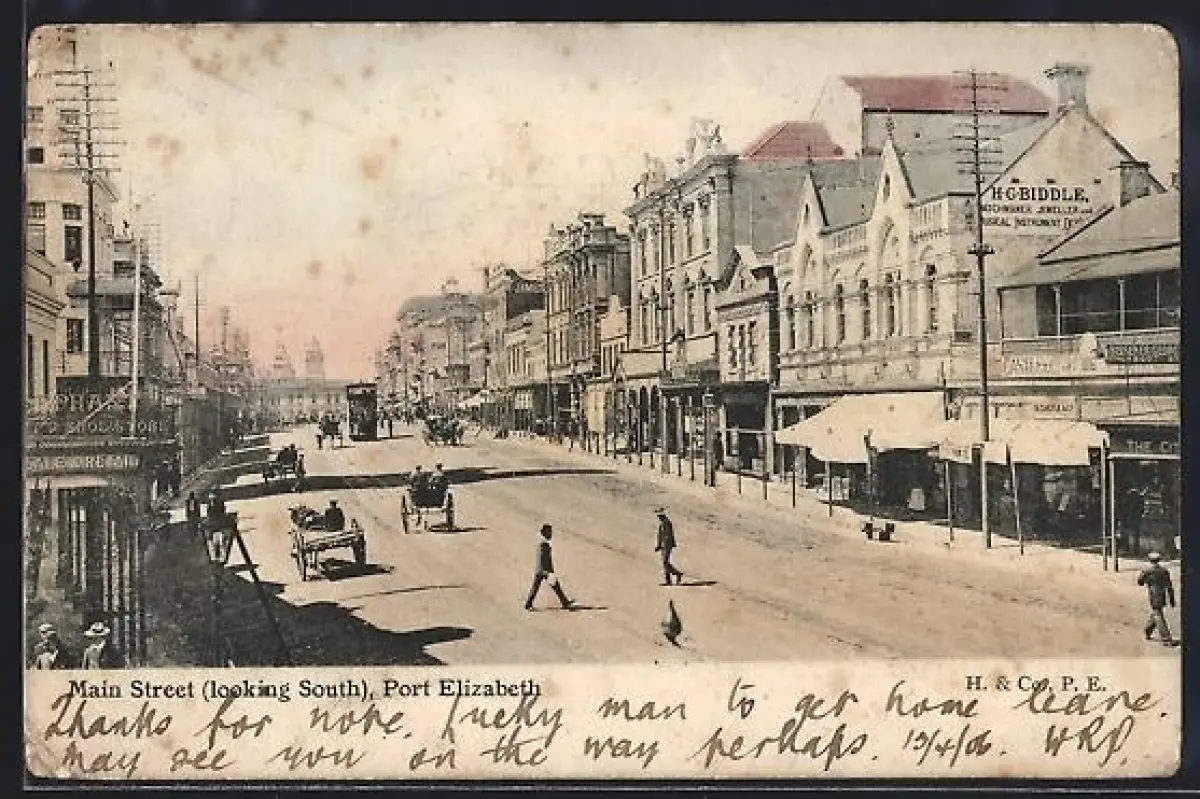 H·G·BIDDLE,
WATCHMAKER JEWELLER AND
MUSICAL INSTRUMENT DEPOT
THE
Main Street (looking South), Port Elizabeth
H. & Co., P. E.
Thanks for note. Lucky man to get home leave.
May see you on the way perhaps. 13/4/06. WRP.